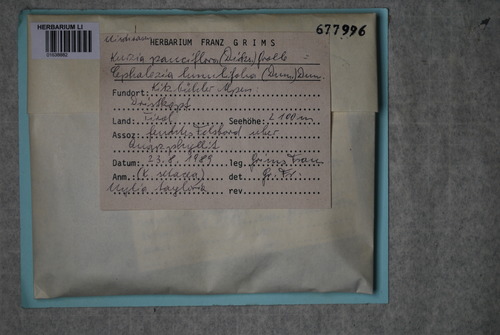 HERBARIUM LI
677996
HERBARIUM FRANZ GRIMS
Kurzia pauciflora (Dicks.) Grolle =
Cephalozia lunulifolia (Dum.) Dum.
Fundort: Kitzbühler Alpen:
Land: Tirol Seehöhe: 2100 m
Assoz: über
Quarzphyllit
Datum: 23.8.1989 leg. Grims Franz
Anm. det Gr. Fr.
Mylia taylorii rev